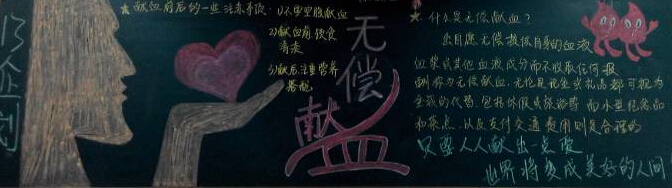 13企划
★献血前后的一些注意事项:1)不要空腹献血
2)献血前,饮食
清淡
3)献后,注重营养
搭配
无偿
献血
★什么是无偿献血?
出自愿无偿提供自身的血液
血浆或其他血液成分而不收取任何报
酬称为无偿献血,无论是现金或礼品都可视为
金钱的代替,包括休假或旅游等 而小型纪念品
和茶点,以及支付交通费用则是合理的
只要人人献出一点爱
世界将变成美好的人间